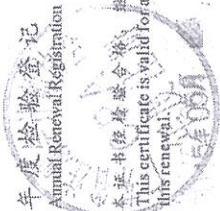 年度检验登记
Annual Renewal Registration
本证书经检验合格，
This certificate is valid for a
this renewal.